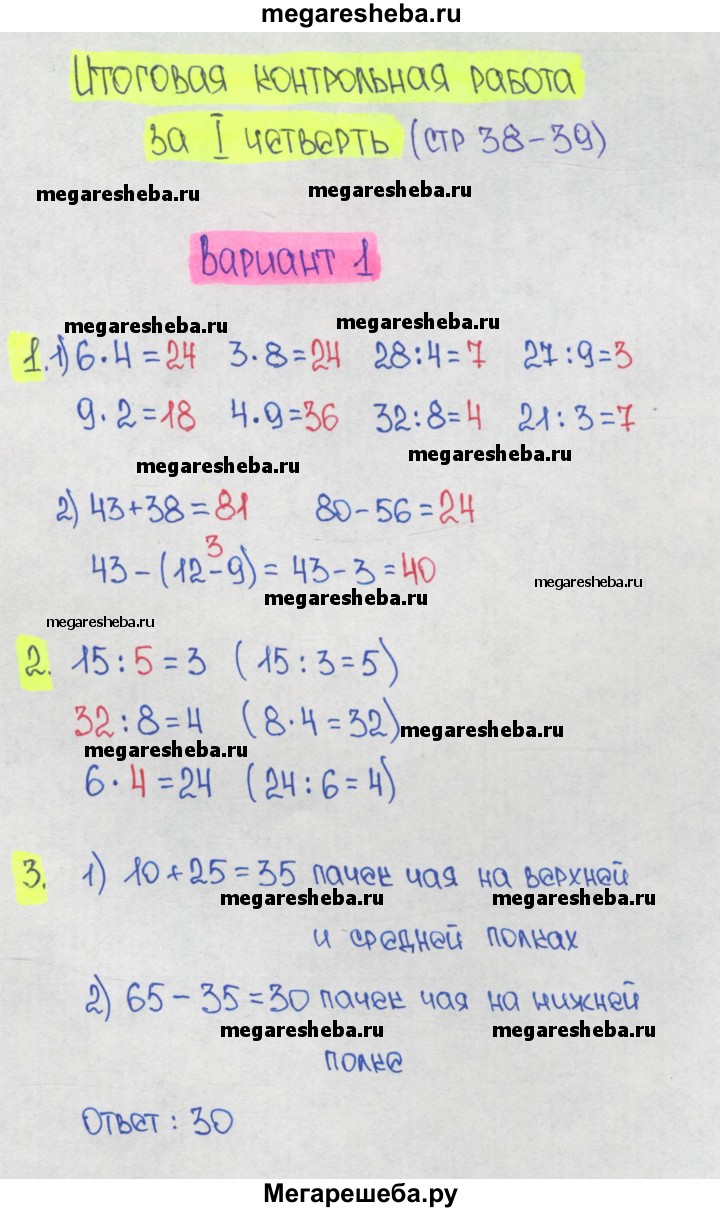 megaresheba.ru
Итоговая контрольная работа
за I четверть (стр 38-39)
megaresheba.ru megaresheba.ru
Вариант 1
megaresheba.ru megaresheba.ru
1. 1) 6·4=24 3·8=24 28:4=7 27:9=3
9·2=18 4·9=36 32:8=4 21:3=7
megaresheba.ru megaresheba.ru
2) 43+38=81 80-56=24
3
43-(12-9)=43-3=40
megaresheba.ru megaresheba.ru
megaresheba.ru
2. 15:5=3 (15:3=5)
32:8=4 (8·4=32)
megaresheba.ru megaresheba.ru
6·4=24 (24:6=4)
3. 1) 10+25=35 пачек чая на верхней
megaresheba.ru megaresheba.ru
и средней полках
2) 65-35=30 пачек чая на нижней
megaresheba.ru megaresheba.ru
полке
Ответ: 30
Мегарешеба.ру